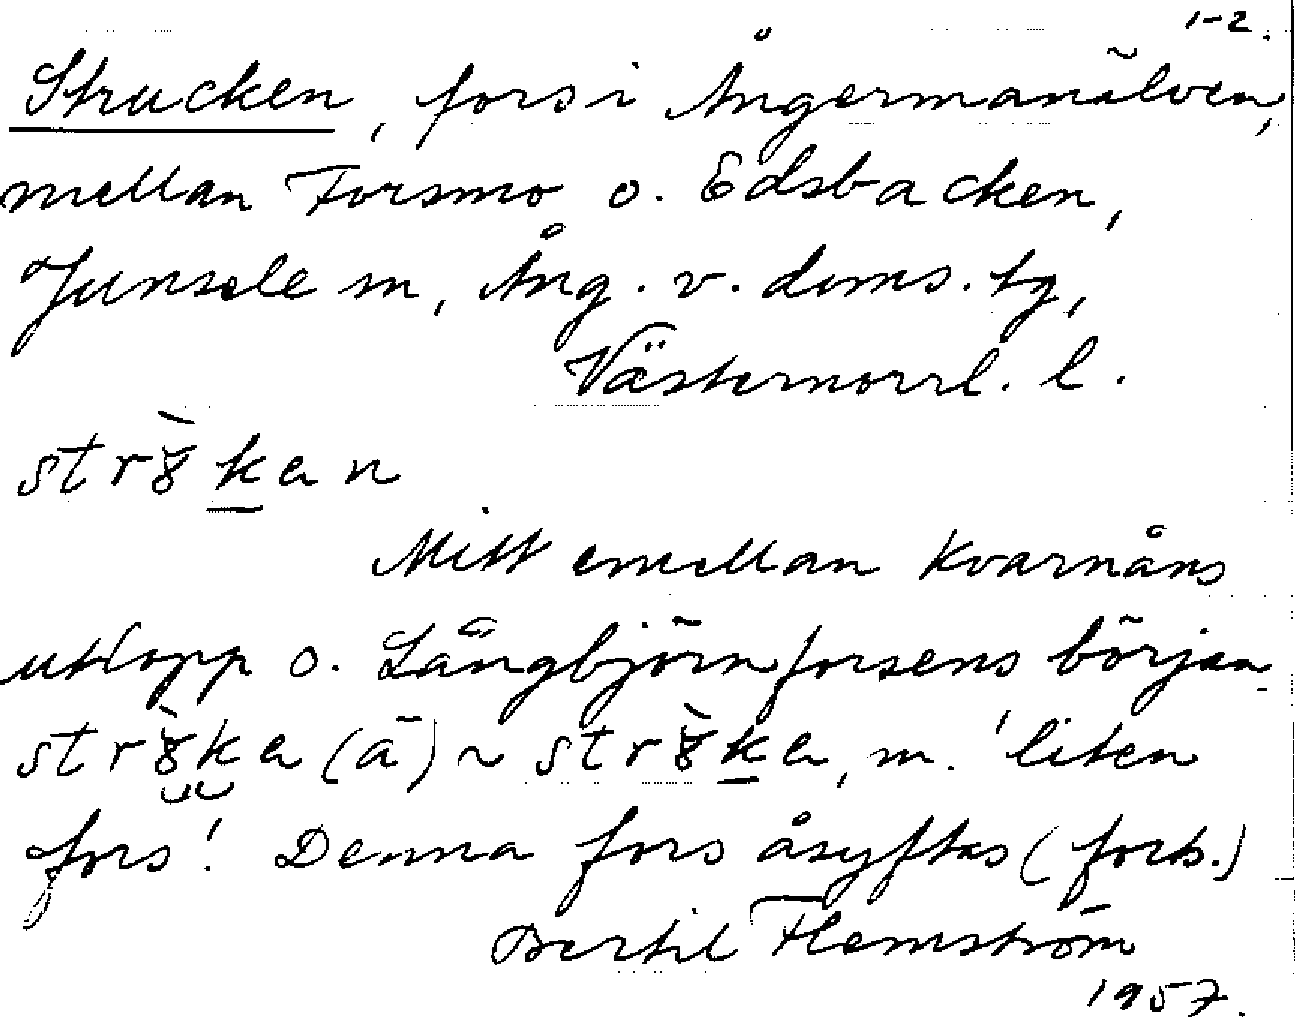 1-2.
Strucken, fors i Ångermanälven,
mellan Forsmo o. Edsbacken,
Junsele sn, Ång. v. doms. tg,
Västernorrl. l.
str8̀kan
Mitt emellan Kvarnåns
utlopp o. Långbjörnforsens början
str8̀ka (ā) ~ str8̀ka, m. 'liten
fors'. Denna fors åsyftas (forts.)
Bertil Flemström
1957.